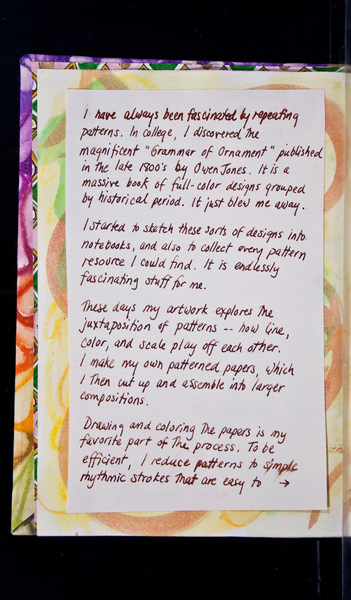 I have always been fascinated by repeating
patterns. In college, I discovered the
magnificent "Grammar of Ornament" published
in the late 1800's by Owen Jones. It is a
massive book of full-color designs grouped
by historical period. It just blew me away.
I started to sketch these sorts of designs into
notebooks, and also to collect every pattern
resource I could find. It is endlessly
fascinating stuff for me.
These days my artwork explores the
juxtaposition of patterns -- how line,
color, and scale play off each other.
I make my own patterned papers, which
I then cut up and assemble into larger
compositions.
Drawing and coloring the papers is my
favorite part of the process. To be
efficient, I reduce patterns to simple
rhythmic strokes that are easy to →